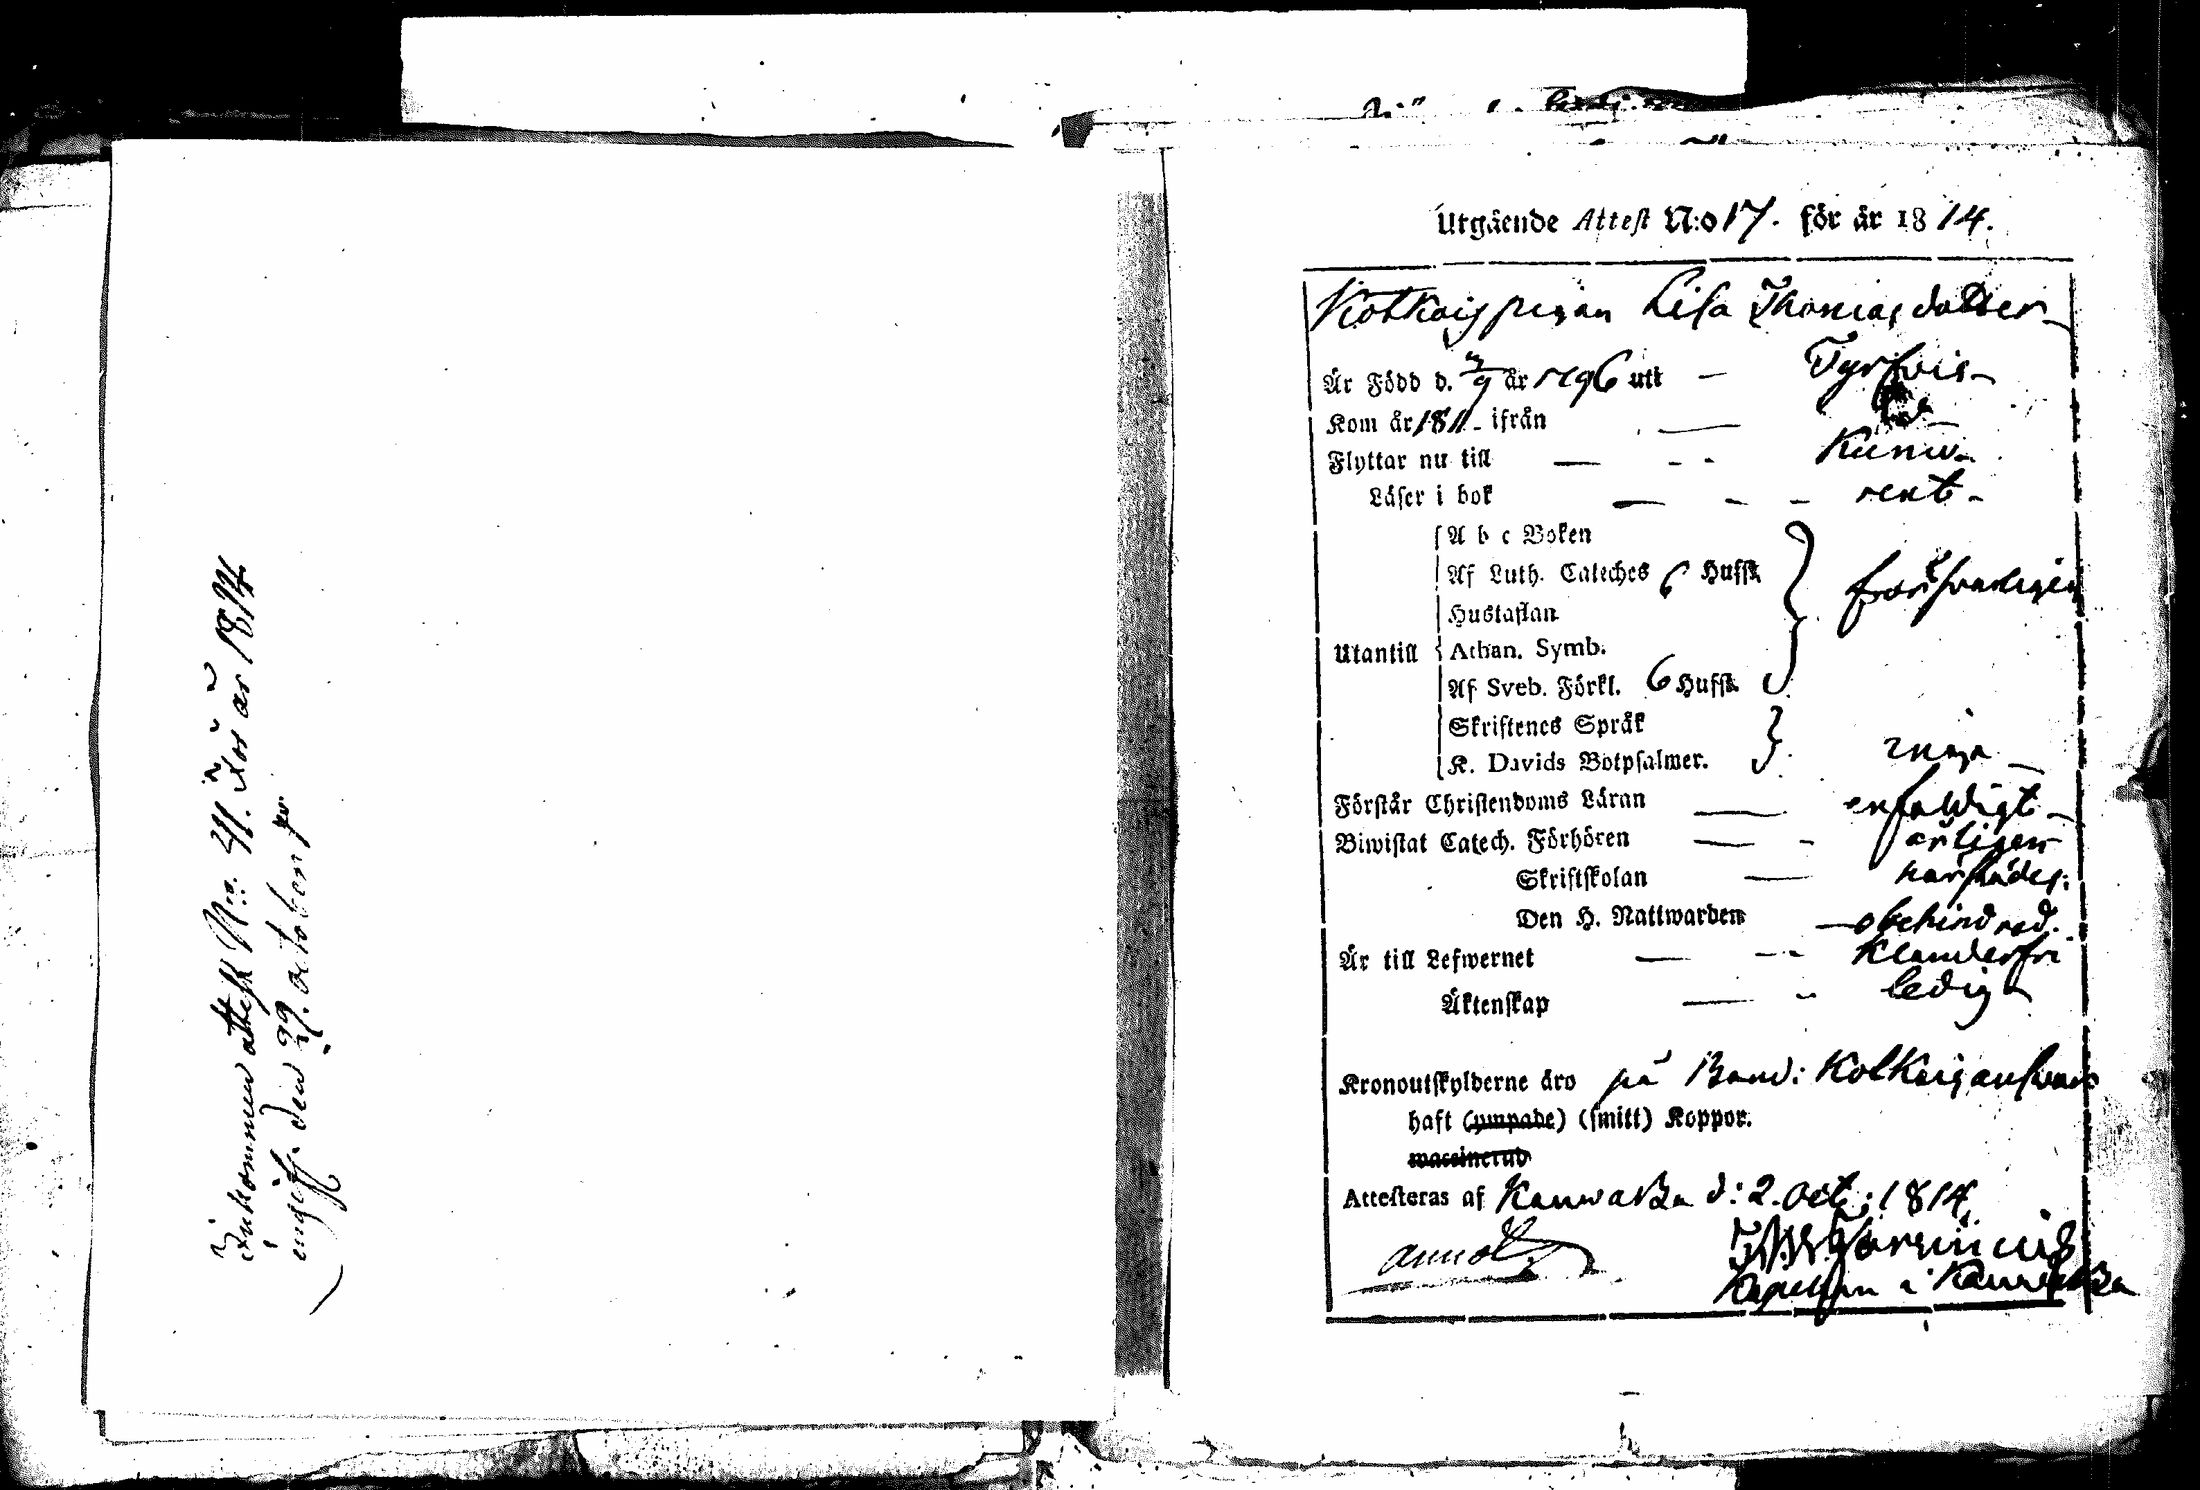 Inkommen attest N:o 41. för år 1814
ingift den 29. october
Utgående Attest N:o 17. för år 1814.
Kolkois pigan Lisa Thomasdotter
Är Född d. /9 år 1796 utt — Tyrfvis
Kom år 1811 ifrån —
Flyttar nu till — - - Kumo
Läser i bok — - - rent
A b c Boken
Af Luth. Cateches 6 Hufst. försvarligen
Hustaflan
Utantill Athan. Symb.
Af Sveb. Förkl. 6 Hufst.
Skriftenes Språk
K. Davids Botpsalmer.
Förstår Christendoms Läran — enfaldigt
Biwistat Catech. Förhören — - årligen
Skriftskolan — härstädes.
Den H. Nattwarden — obehindrad.
Är till Lefwernet — - - Klanderfri
Äktenskap — - ledig
Kronoutskylderne äro på Bond: Kolkois answar
haft (ympade) (smitt) Koppor.
waccinerad
Attesteras af Kauwatza d: 2. Oct: 1814
Kapellan i Kauwatza